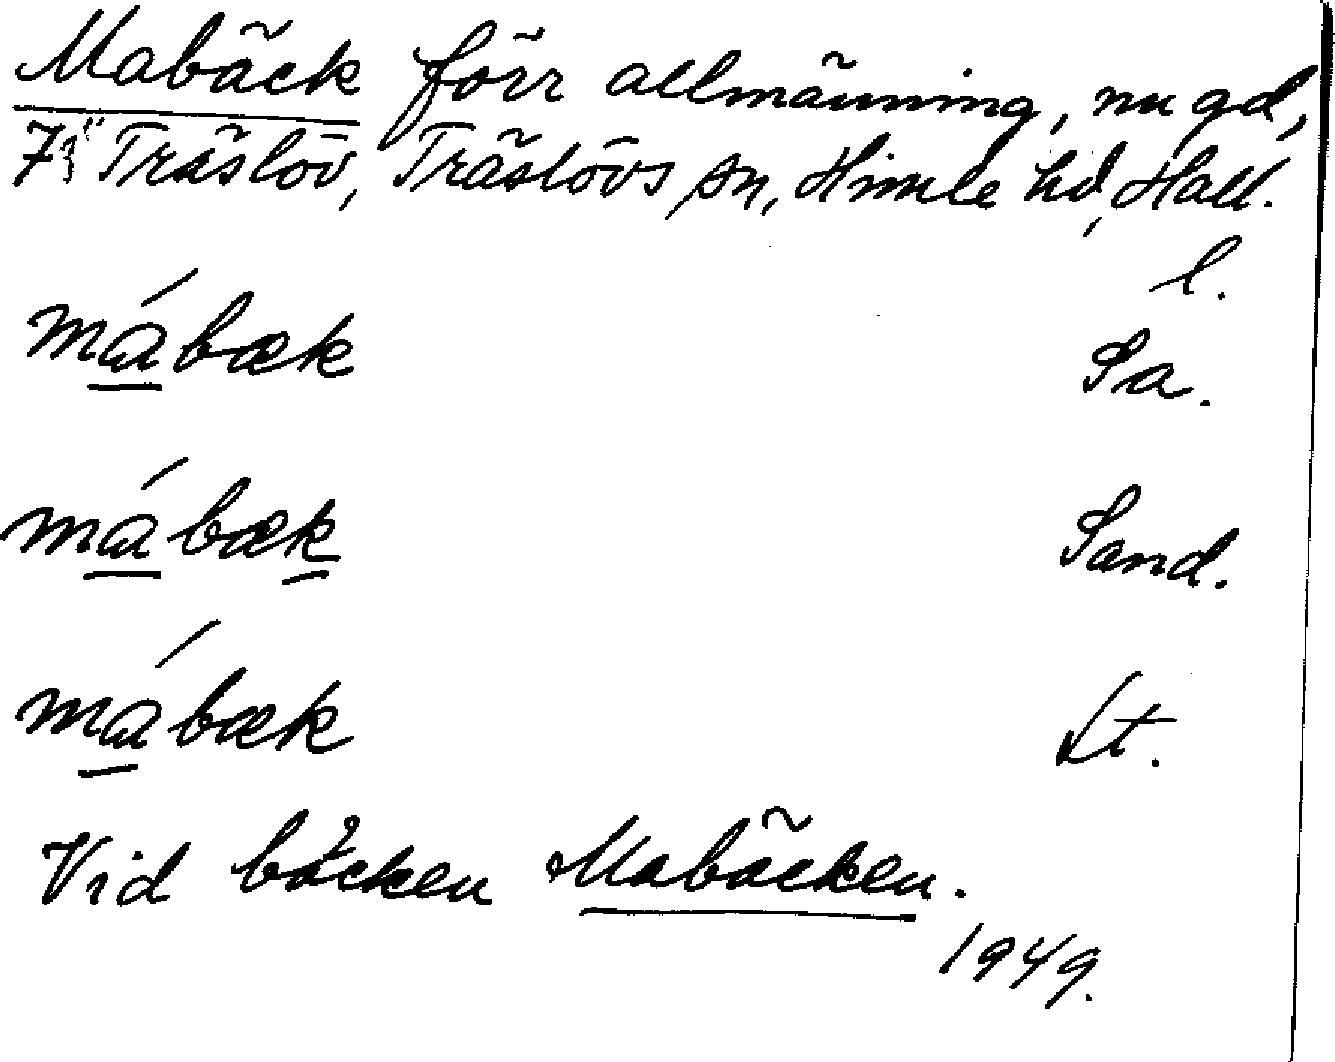 Mabäck förr allmänning, nu gd,
7¹" Träslöv, Träslövs sn, Himle hd, Hall.
l.
mábæk Sa.
mábæk Sand.
mábæk Lt.
Vid bäcken Mabäcken.
1949.